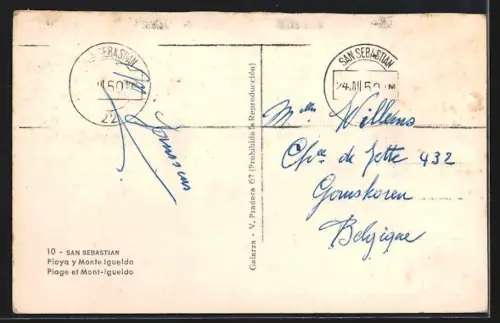 SAN SEBASTIAN
50
22
SAN SEBASTIAN
24.III 50
Mlle Willems
Chée de Jette 432
Belgique
Galarza - V. Pradera 67 (Prohibida la Reproducción)
10 - SAN SEBASTIAN
Playa y Monte Igueldo
Plage et Mont-Igueldo